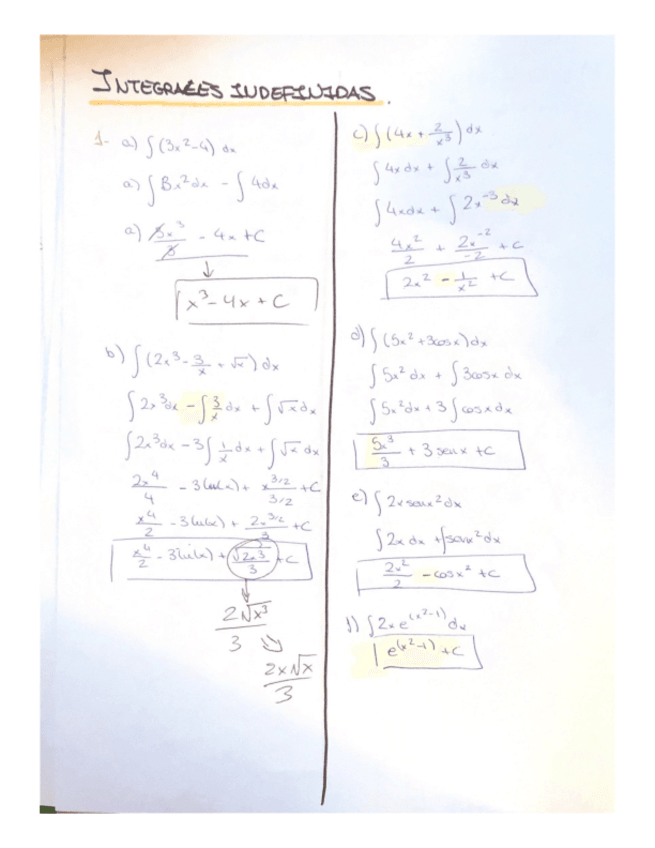 INTEGRALES INDEFINIDAS.
1- a) ∫(3x²-4) dx
a) ∫3x²dx - ∫4dx
a) 3x³/3 - 4x+C
↓
x³-4x+C
b) ∫(2x³-3/x+√x)dx
∫2x³dx - ∫3/x dx + ∫√x dx
∫2x³dx - 3∫1/x dx + ∫√x dx
2x⁴/4 - 3(ln(x)) + x^(3/2)/(3/2) +C
x⁴/2 - 3(ln(x)) + 2x^(3/2)/3 +C
x⁴/2 - 3(ln(x)) + √2x³/3 +C
↓
2√x³/3
2x√x/3
c) ∫(4x+2/x³)dx
∫4xdx + ∫2/x³ dx
∫4xdx + ∫2x⁻³dx
4x²/2 + 2x⁻²/-2 +C
2x² - 1/x² +C
d) ∫(5x²+3cosx)dx
∫5x²dx + ∫3cosx dx
∫5x²dx + 3∫cosx dx
5x³/3 + 3senx +C
e) ∫2xsenx²dx
∫2x dx + ∫senx²dx
2x²/2 - cosx² +C
f) ∫2xe^(x²-1)dx
e^(x²-1)+C